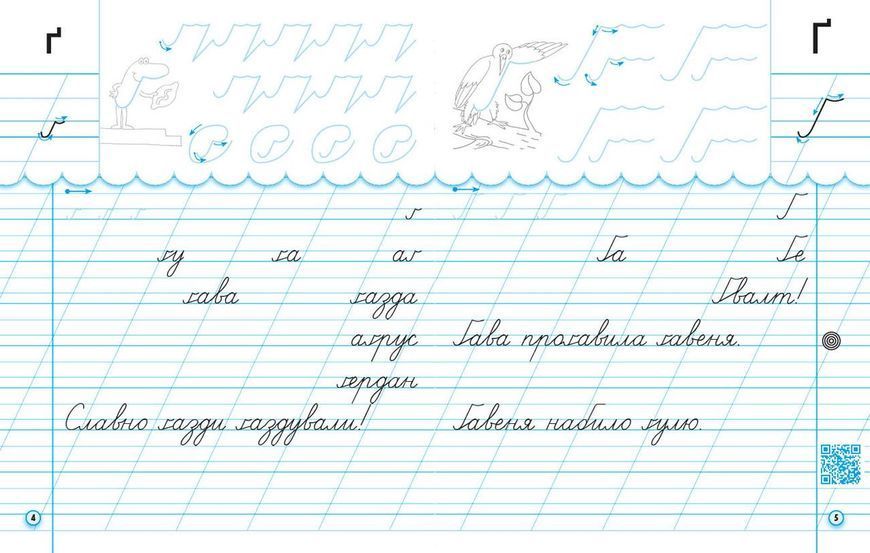 ґ
ґ
ґу ґа аґ
ґава ґазда
аґрус
ґердан
Славно ґазди ґаздували!
4
Ґ
Ґ
Ґа Ґе
Ґвалт!
Ґава проґавила ґавеня.
Ґавеня набило ґулю.
5